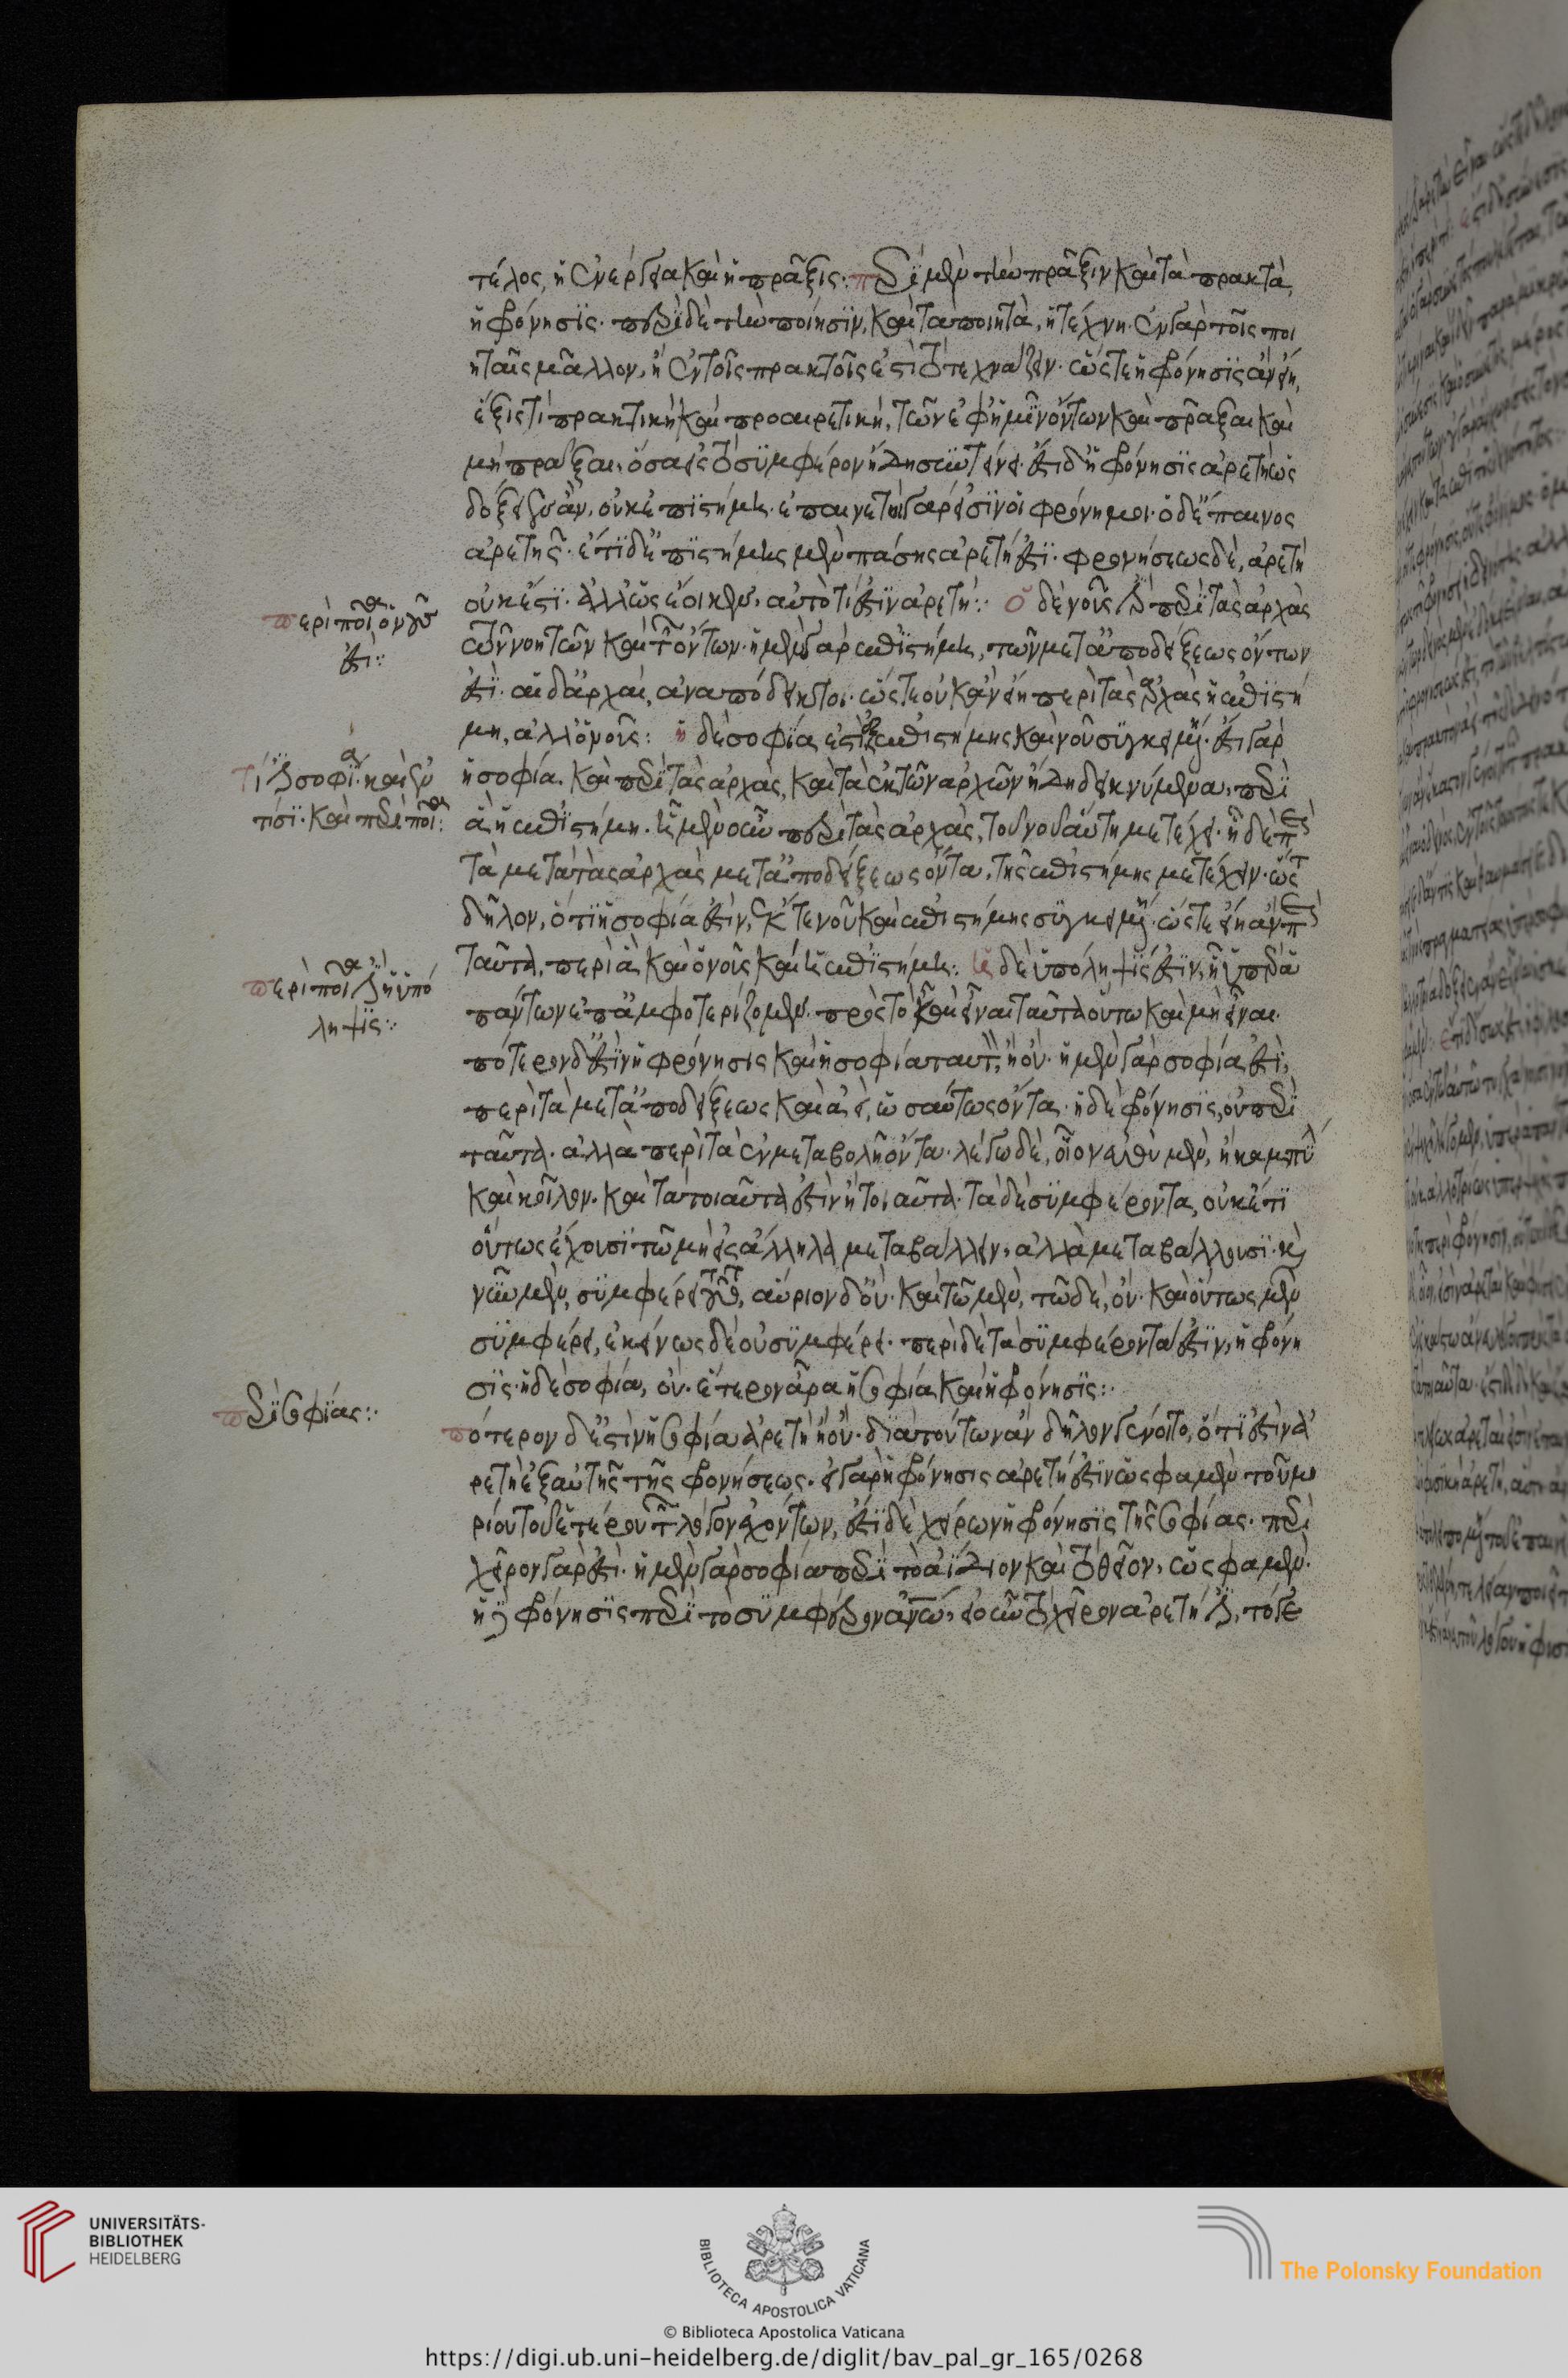 τέλος, ἡ ἐνέργεια καὶ ἡ πρᾶξις· περὶ μὲν τὴν πρᾶξιν καὶ τὰ πρακτὰ,
ἡ φρόνησις· περὶ δὲ τὴν ποίησιν, καὶ τὰ ποιητὰ, ἡ τέχνη· ἐν γὰρ τοῖς ποι
ητοῖς μᾶλλον, ἢ ἐν τοῖς πρακτοῖς ἐστὶ τὸ τεχνάζειν· ὥστε ἡ φρόνησις ἂν εἴη,
ἕξις τὶ πρακτικὴ καὶ προαιρετικὴ, τῶν ἐφ' ἡμῖν ὄντων καὶ πρᾶξαι καὶ
μὴ πρᾶξαι, ὅσα εἰς τὸ συμφέρον ἤδη συντείνει· ἔστι δ' ἡ φρόνησις ἀρετὴ ὡς
δόξειεν ἂν, οὐκ ἐπιστήμη· ἐπαινετοὶ γάρ εἰσιν οἱ φρόνημοι· ὁ δ' ἔπαινος
ἀρετῆς· ἔτι δ' ἐπιστήμης μὲν πάσης ἀρετή ἐστι· φρονήσεως δὲ, ἀρετὴ
οὐκ ἔστι· ἀλλ' ὡς ἔοικεν, αὐτό τι ἐστὶν ἀρετή: ὁ δὲ νοῦς ἐστὶ περὶ τὰς ἀρχὰς
περὶ ποῖα ὁ νοῦς
ἐστι:
τῶν νοητῶν καὶ τῶν ὄντων· ἡ μὲν γὰρ ἐπιστήμη, τῶν μετ' ἀποδείξεως ὄντων
ἐστί· αἱ δ' ἀρχαὶ, ἀναπόδεικτοι· ὥστε οὐκ ἂν εἴη περὶ τὰς ἀρχὰς ἡ ἐπιστή
μη, ἀλλ' ὁ νοῦς: ἡ δὲ σοφία ἐστὶν ἐξ ἐπιστήμης καὶ νοῦ συγκειμένη· ἔστι γὰρ
τί ἐστι σοφία· καὶ ἐκ
τίσι· καὶ περὶ ποῖα:
ἡ σοφία· καὶ περὶ τὰς ἀρχὰς, καὶ τὰ ἐκ τῶν ἀρχῶν ἤδη δεικνύμενα, περὶ
ἃ ἡ ἐπιστήμη· ᾗ μὲν οὖν περὶ τὰς ἀρχὰς, τοῦ νοῦ αὕτη μετέχει· ᾗ δὲ περὶ
τὰ μετὰ τὰς ἀρχὰς μετ' ἀποδείξεως ὄντα, τῆς ἐπιστήμης μετέχειν· ὥστε
δῆλον, ὅτι ἡ σοφία ἐστὶν, ἔκ τε νοῦ καὶ ἐπιστήμης συγκειμένη· ὥστε εἴη ἂν περὶ
ταῦτα, περὶ ἃ καὶ ὁ νοῦς καὶ ἡ ἐπιστήμη: ἡ δὲ ὑπόληψίς ἐστιν, ᾗ ὑπὲρ ἁ
περὶ ποῖα ἐστὶν ἡ ὑπό
ληψις:
πάντων ἐπαμφοτερίζομεν· πρὸς τὸ καὶ εἶναι ταῦτα οὕτω καὶ μὴ εἶναι·
πότερον δ' ἐστὶν ἡ φρόνησις καὶ ἡ σοφία ταυτὸν, ἢ οὔ· ἡ μὲν γὰρ σοφία ἐστὶ,
περὶ τὰ μετ' ἀποδείξεως καὶ ἀεὶ, ὡσαύτως ὄντα· ἡ δὲ φρόνησις, οὐ περὶ
ταῦτα· ἀλλὰ περὶ τὰ ἐν μεταβολῇ ὄντα· λέγω δὲ, οἷον εὐθὺ μὲν, ἢ καμπύλον
καὶ κοῖλον· καὶ τὰ τοιαῦτα ἐστὶν ᾗ τοιαῦτα· τὰ δὲ συμφέροντα, οὐκέτι
οὕτως ἔχουσι τῶ μὴ εἰς ἄλληλα μεταβάλλειν, ἀλλὰ μεταβάλλουσι· καὶ
νῦν μὲν, συμφέρει τοῦτο, αὔριον δ' οὔ· καὶ τῷ μὲν, τῷδε, οὔ· καὶ οὕτως μὲν
συμφέρει, ἐκείνως δὲ οὐ συμφέρει· περὶ δὲ τὰ συμφέροντά ἐστιν, ἡ φρόνη
σις· ἡ δὲ σοφία, οὔ· ἕτερον ἄρα ἡ σοφία καὶ ἡ φρόνησις:
περὶ σοφίας:
πότερον δ' ἐστὶν ἡ σοφία ἀρετὴ ἢ οὔ· διὰ τούτων ἂν δῆλον γένοιτο, ὅτι ἐστὶν ἀ
ρετὴ ἐξ αὐτῆς τῆς φρονήσεως· εἰ γὰρ ἡ φρόνησις ἀρετή ἐστιν ὥς φαμεν τοῦ μο
ρίου τοῦ ἑτέρου τῶν λόγον ἐχόντων, ἔστι δὲ χείρων ἡ φρόνησις τῆς σοφίας· περὶ
χείρον γάρ ἐστι· ἡ μὲν γὰρ σοφία περὶ τὸ ἀίδιον καὶ τὸ θεῖον, ὥς φαμεν·
ἡ δὲ φρόνησις περὶ τὸ συμφέρον ἀνθρώπῳ, εἰ οὖν τὸ χεῖρον ἀρετή ἐστι, τό γε
UNIVERSITÄTS-
BIBLIOTHEK
HEIDELBERG
BIBLIOTECA APOSTOLICA VATICANA
The Polonsky Foundation
© Biblioteca Apostolica Vaticana
https://digi.ub.uni-heidelberg.de/diglit/bav_pal_gr_165/0268